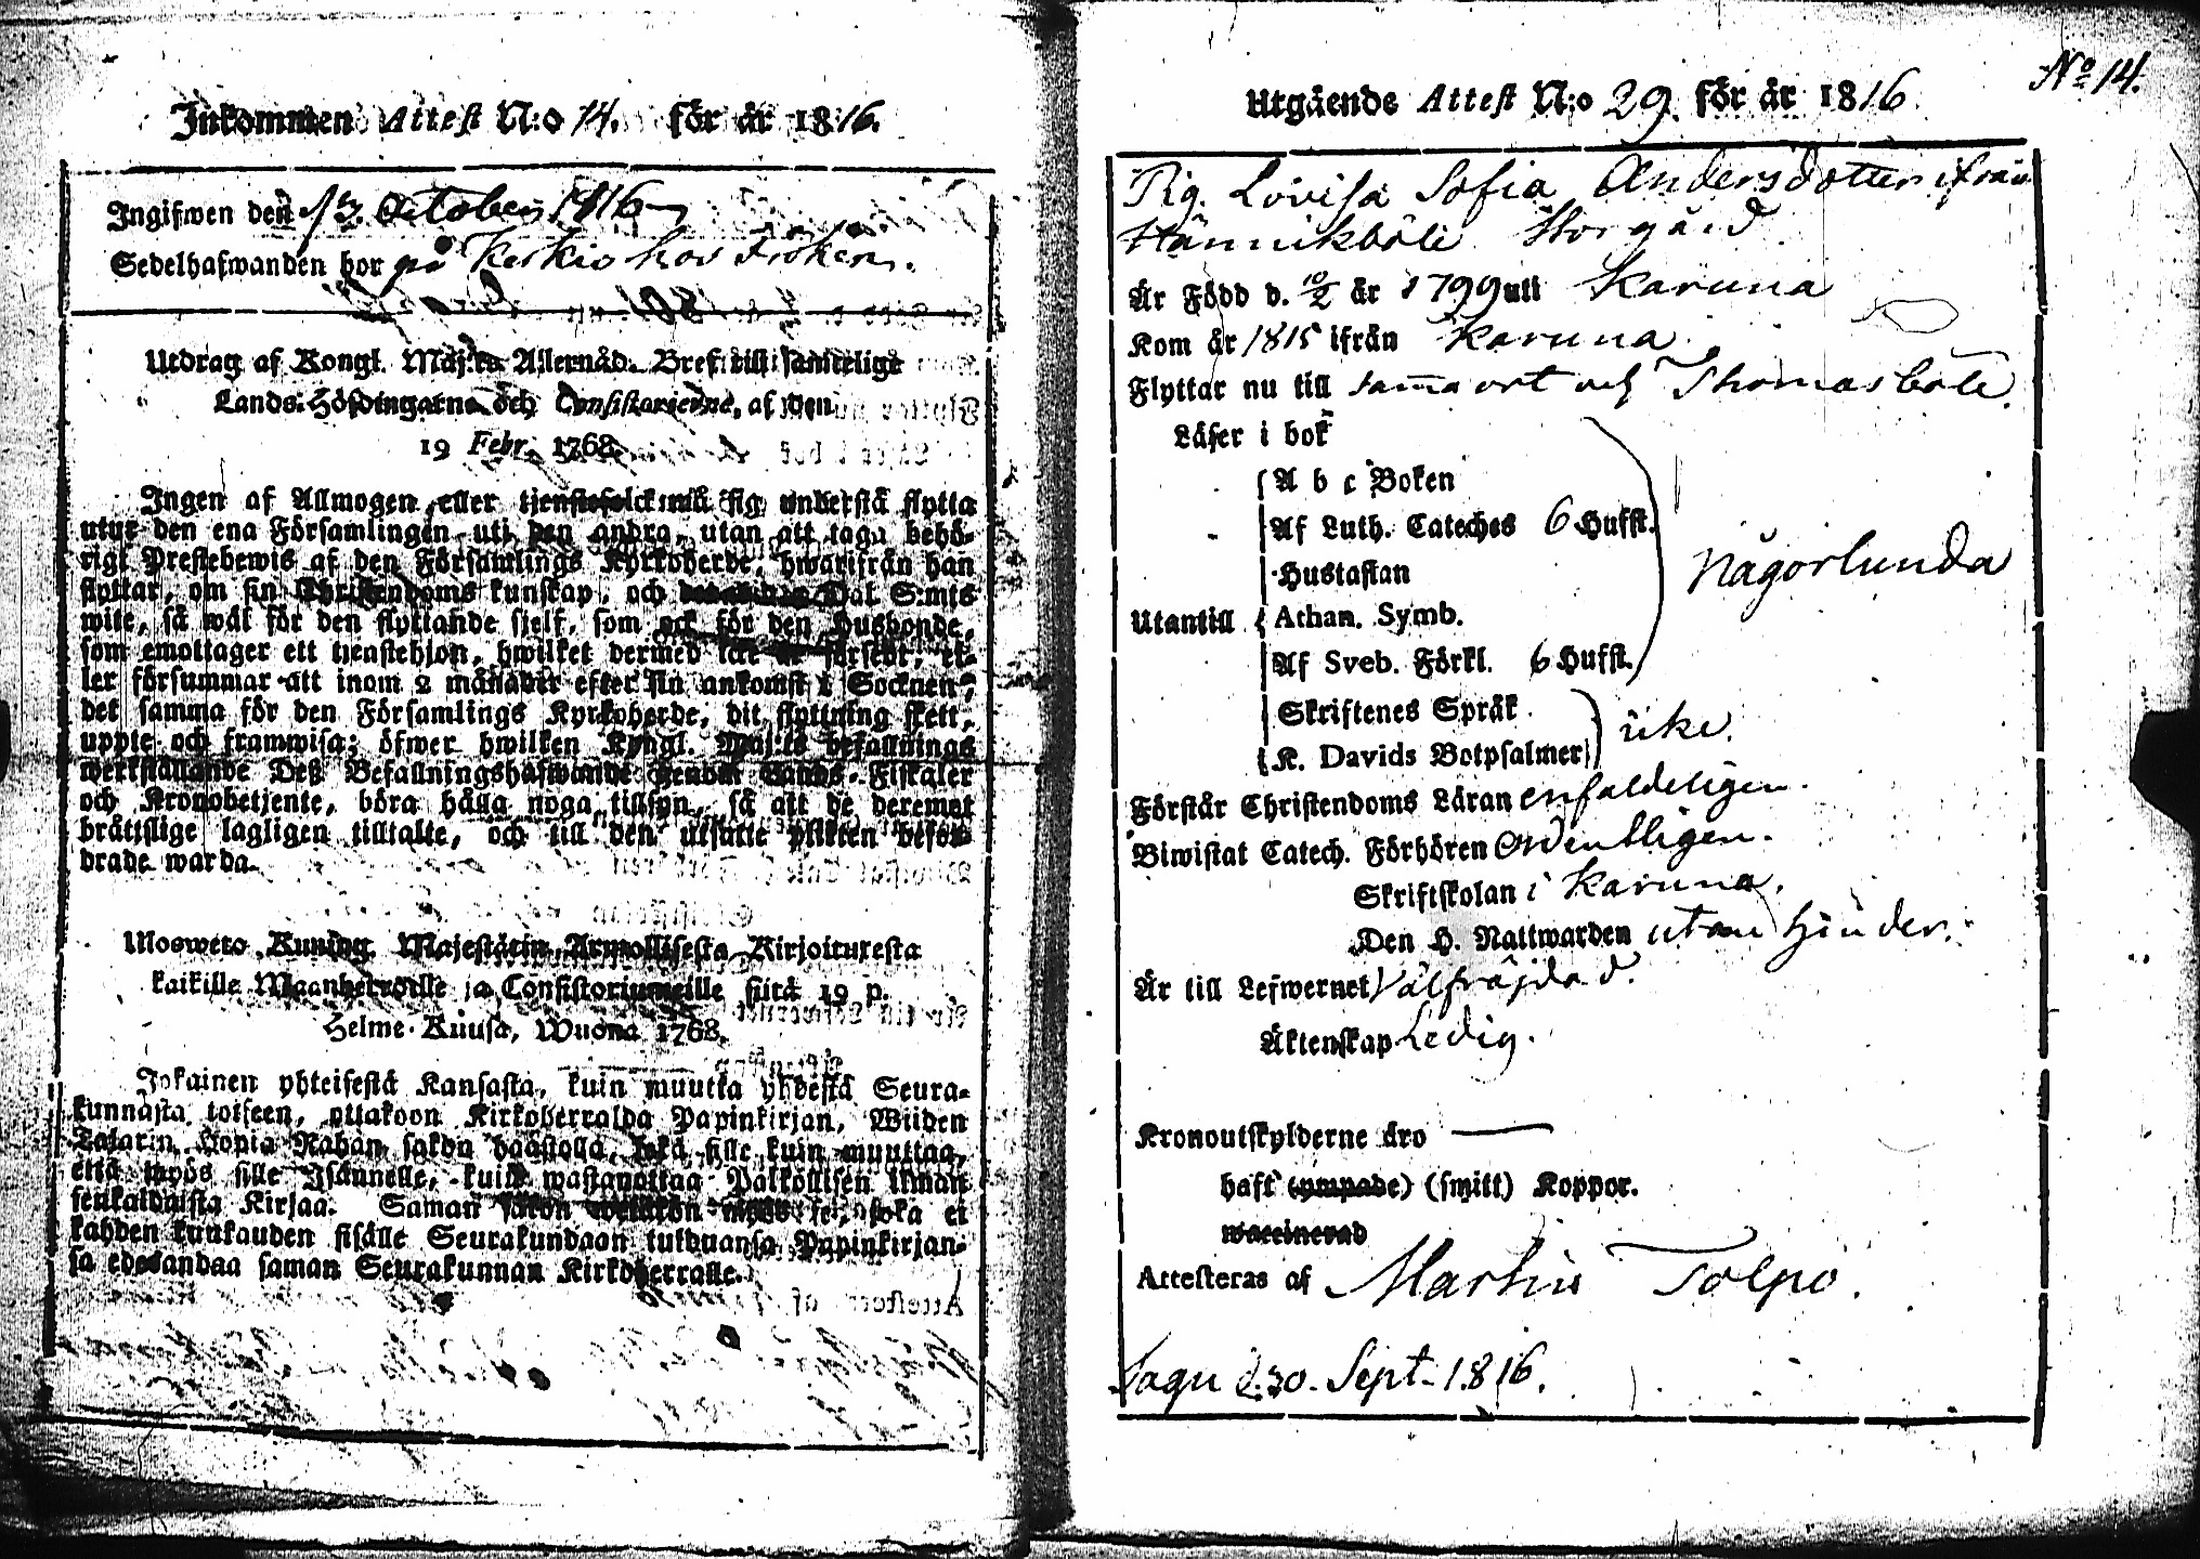 Inkommen Attest N:o 14. för år 1816.
Ingifwen den 13. October 1816
Sedelhafwanden bor på Keskis hos Fröken.
Utdrag af Kongl. Maj:ts Allernåd. Bref till samtelige
Lands-Höfdingarne och Consistorierne, af den
19 Febr. 1768.
Ingen af Allmogen eller tjenstefolck må sig understå flytta
utur den ena Församlingen uti den andra, utan att taga behö-
rigt Prestebewis af den Församlings Kyrkoherde, hwarifrån han
flyttar, om sin Christendoms kunskap, och Dal. S:mts
wite, så wäl för den flyttande sjelf, som ock för den Husbonde,
som emottager ett tjenstehjon, hwilket dermed icke är försedt, el-
ler försummar att inom 2 månader efter sin ankomst i Socknen,
det samma för den Församlings Kyrkoherde, dit flyttning skett,
uppte och framwisa; öfwer hwilken Kongl. Maj:ts befallnings
werkställande Deß Befallningshafwande genom Lands-Fiskaler
och Kronobetjente, böra hålla noga tillsyn, så att de deremot
bråttslige lagligen tilltalte, och till den utsatte plikten befor-
drade warda.
Ulosweto Kuning. Majestätin Armollisesta Kirjoituxesta
kaikille Maanherroille ja Consistoriumeille siitä 19 p.
Helme-Kuusa, Wuona 1768.
Jokainen yhteisestä Kansasta, kuin muutta yhdestä Seura-
kunnasta toiseen, ottakoon Kirkoherralda Papinkirjan, Wiiden
Talarin Hopia Rahan sakon haastolla, sekä sille kuin muuttaa,
että myös sille Isännelle, kuin wastanottaa Palkollisen ilman
senkaldaista Kirjaa. Saman sakon myös se, joka ei
kahden kuukauden sisälle Seurakundaan tulduansa Papinkirjan-
sa edesandaa saman Seurakunnan Kirkoherralle.
No 14.
Utgående Attest N:o 29. för år 1816
Pig. Lovisa Sofia Andersdotter ifrån
Hännikböle Storgård.
Är Född d. 10/2 år 1799 uti Karuna
Kom år 1815 ifrån Karuna.
Flyttar nu till samma ort och Thomasböle.
Läser i bok
A b c Boken
Af Luth. Cateches 6 Hufst.
Hustaflan
Utantill Athan. Symb.
Af Sveb. Förkl. 6 Hufst.
Någorlunda
Skriftenes Språk
K. Davids Botpsalmer
icke.
Förstår Christendoms Läran enfaldeligen.
Biwistat Catech. Förhören Ordentligen.
Skriftskolan i Karuna.
Den H. Nattwarden utan hinder.
Är till Lefwernet Välfräjdad.
Äktenskap Ledig.
Kronoutskylderne äro —
haft (ympade) (smitt) Koppor.
waccinerad
Attesteras af Martin Tolpo.
Sagu d. 30. Sept. 1816.